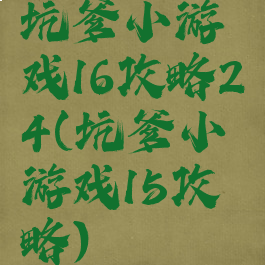 坑爹小游
戏16攻略2
4(坑爹小
游戏15攻
略)